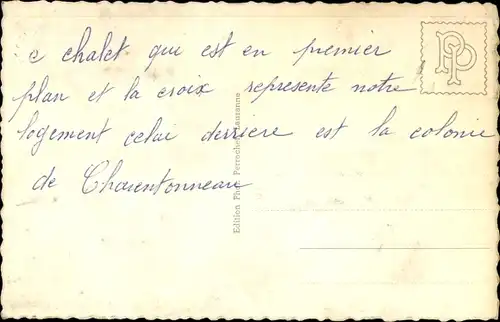 c chalet qui est en premier
plan et la croix represente notre
logement celui derriere est la colonie
de Charentonneau
Edition Perrochet Lausanne
PP